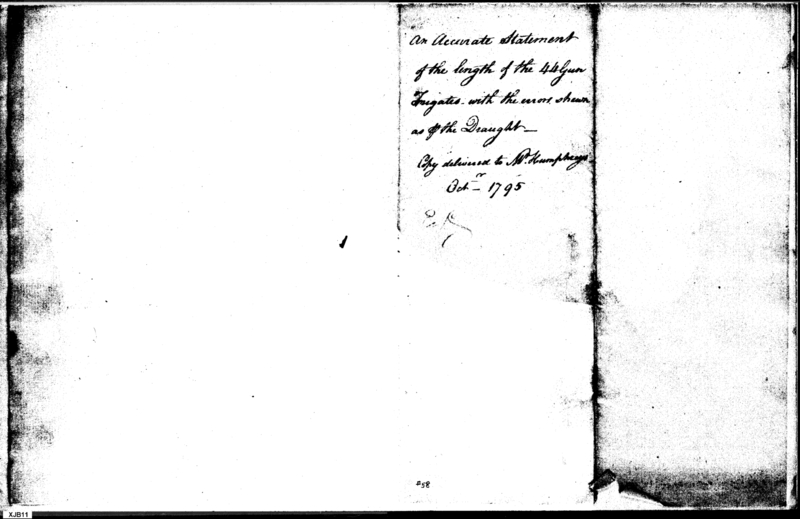 An Accurate Statement
of the length of the 44 Gun
Frigates with the errors shewn
as ⅌ the Draught —
Copy delivered to Mr. Humphreys
Octr. 1795
#58
XJB11